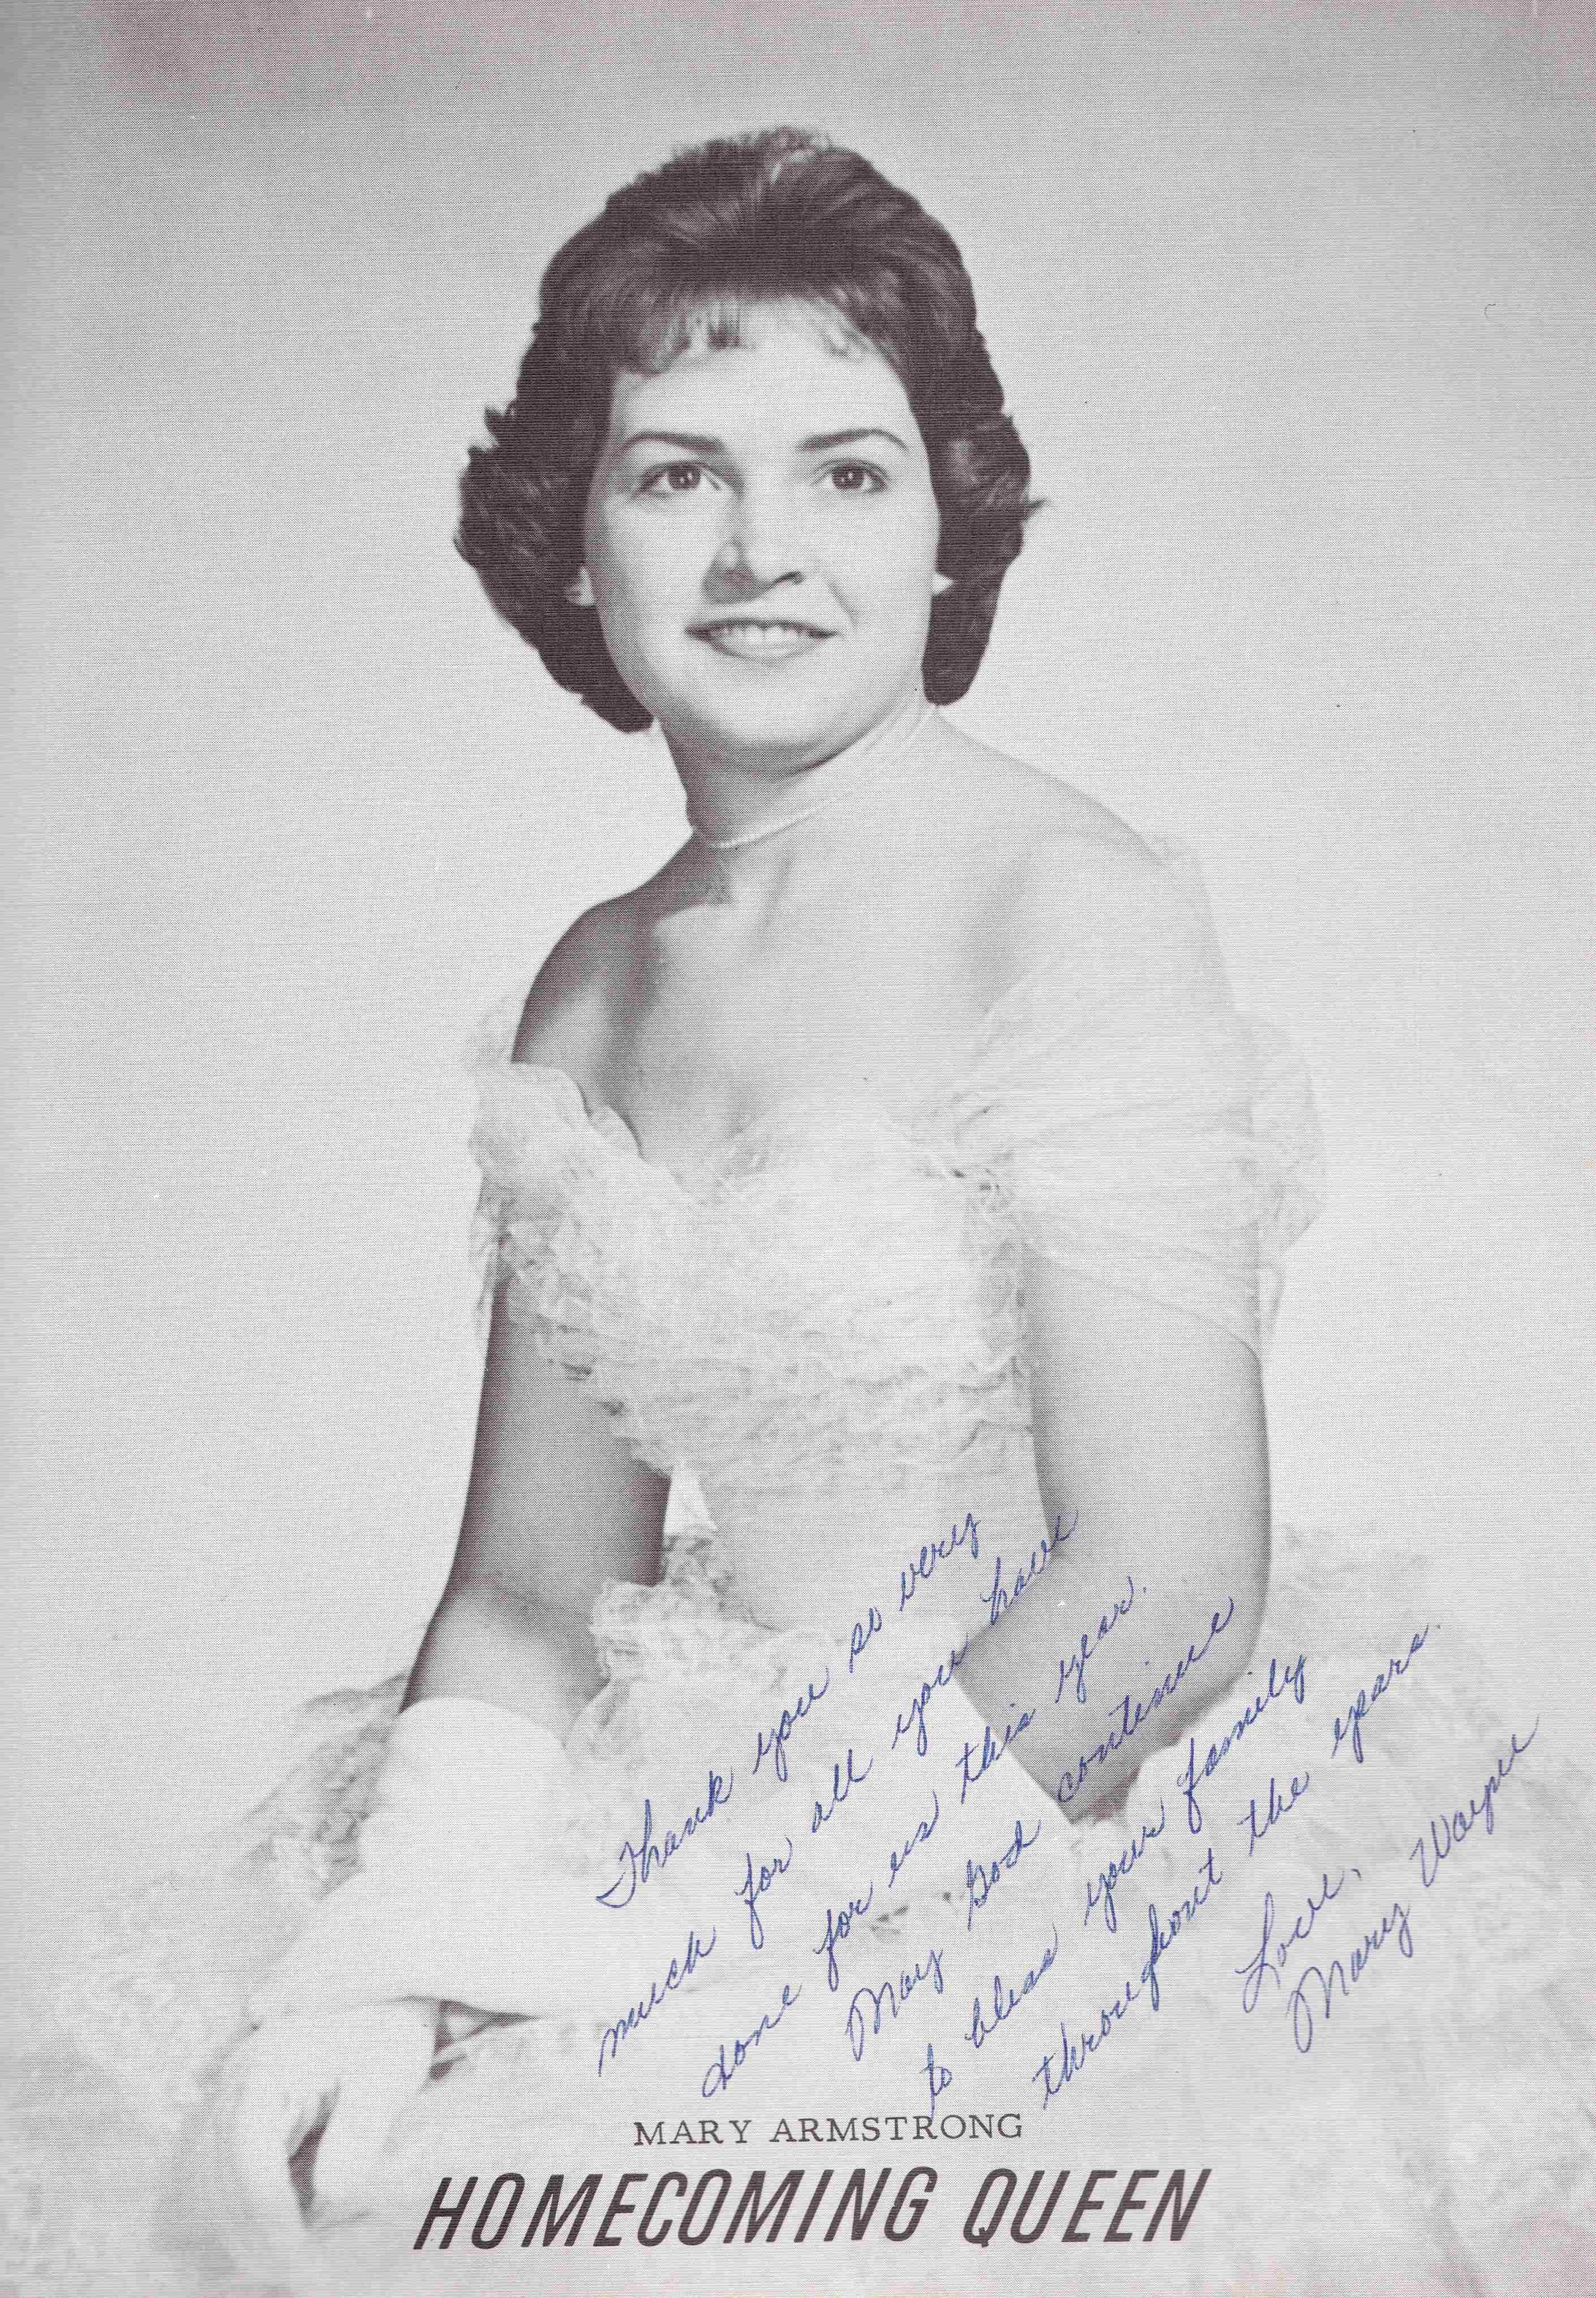 Thank you so very
much for all you have
done for us this year.
May God continue
to bless your family
throughout the years.
Love,
Mary Wayne
MARY ARMSTRONG
HOMECOMING QUEEN